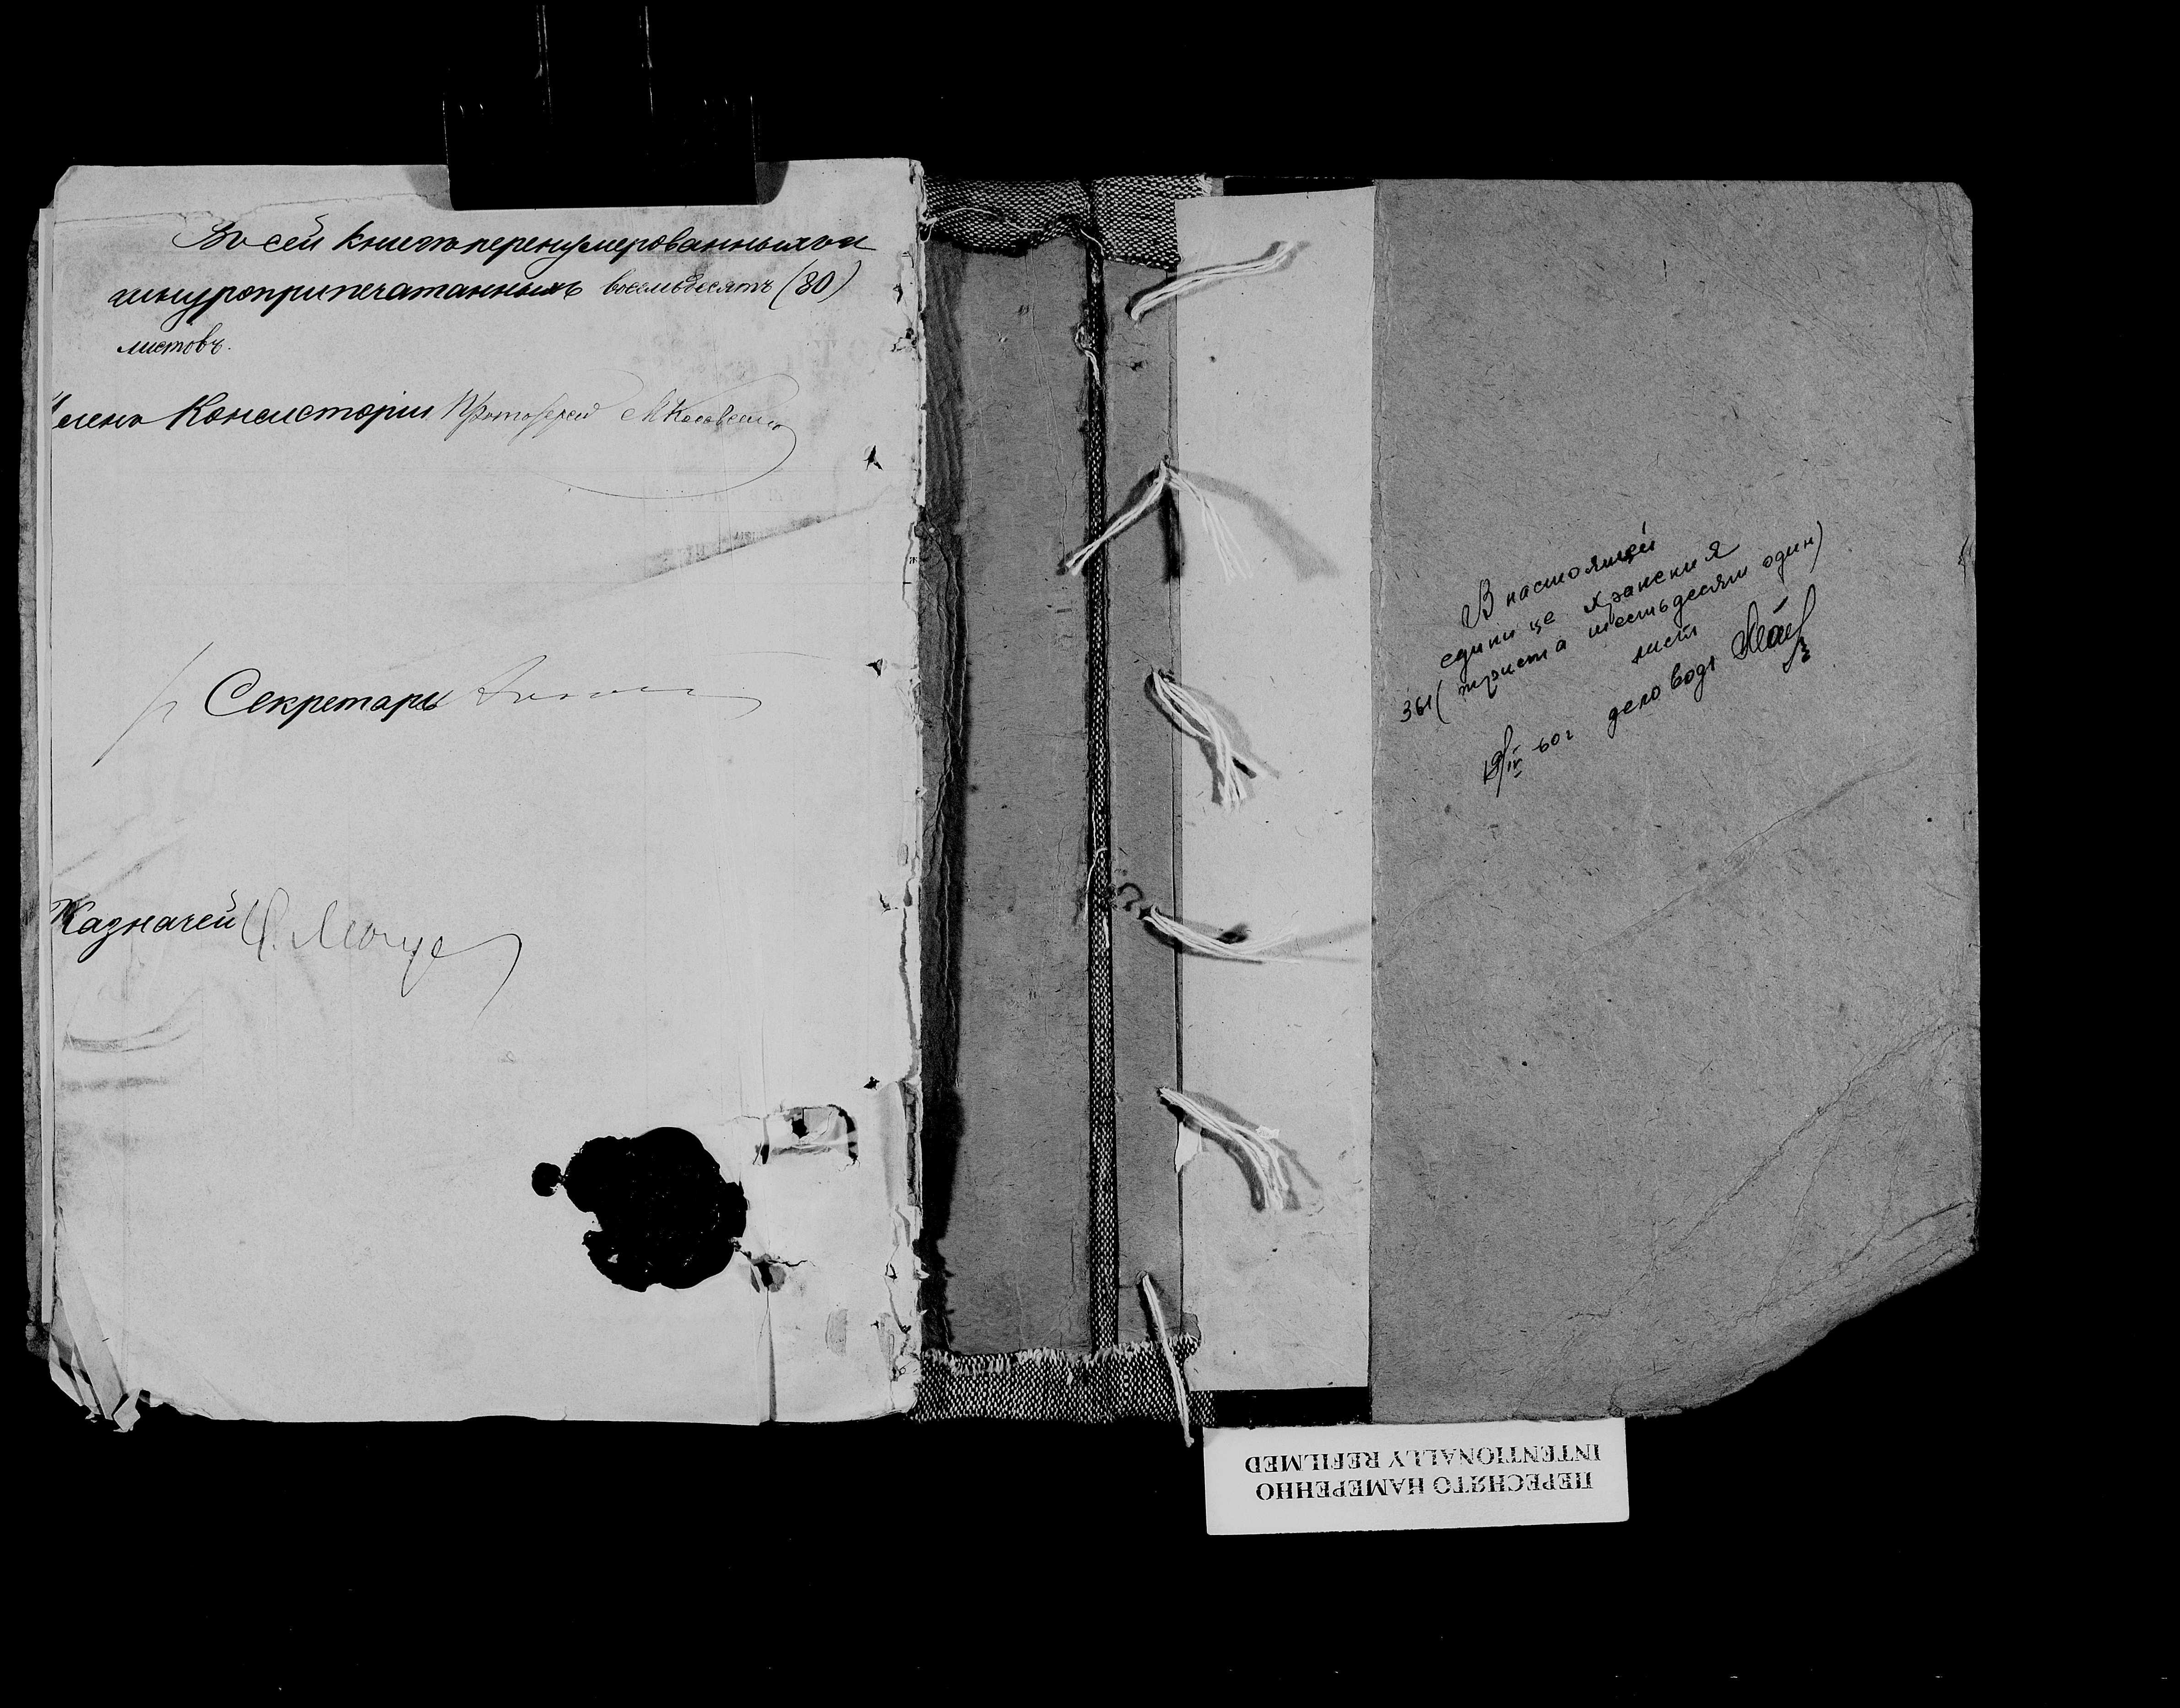 Въ сей книгѣ перенумерованныхъ и
шнуроприпечатанныхъ восемьдесятъ (80)
листовъ.
Членъ Консисторіи Протоіерей М
Секретарь
Казначей
В настоящей
единице хранения
361 (триста шестьдесят один)
лист
19/IV 60г деловод
ПЕРЕСНЯТО НАМЕРЕННО
INTENTIONALLY REFILMED